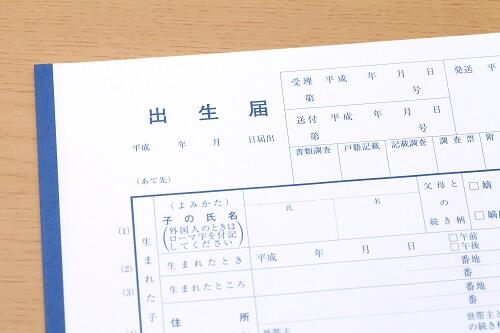 出生届
平成 年 月 日届出
(あて先)
受理 平成 年 月 日
第 号
送付 平成 年 月 日
第 号
発送 平
書類調査 戸籍記載 記載調査 調査票 附
(1) 生まれた子
(よみかた)
子の氏名
(外国人のときは
ローマ字を付記
してください)
氏 名
父母と
の
続き柄
□嫡
□嫡
(2) 生まれたとき 平成 年 月 日 □午前
□午後
(3) 生まれたところ 番地
番
住所 番地
番
世帯主
世帯主と
の続き